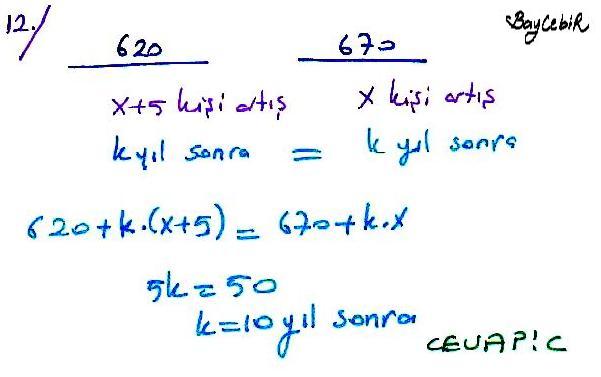 12./
BayCebiR
620 670
x+5 kişi artış x kişi artış
k yıl sonra = k yıl sonra
620+k.(x+5) = 670+k.x
5k = 50
k=10 yıl sonra
CEVAP: C